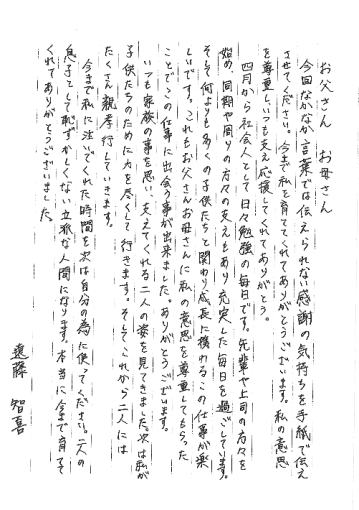 お父さん　お母さん
今回なかなか言葉では伝えられない感謝の気持ちを手紙で伝え
させてください。今まで私を育ててくれてありがとうございます。私の意思
を尊重しいつも支え応援してくれてありがとう。
四月から社会人として日々勉強の毎日です。先輩や上司の方々を
始め、同期や周りの方々の支えもあり充実した毎日を過ごしています。
そして何よりも多くの子供たちと関わり成長に携わるこの仕事が楽
しいです。これもお父さんお母さんに私の意思を尊重してもらった
ことでこの仕事に出会う事が出来ました。ありがとうございます。
いつも家族の事を思い、支えてくれる二人の姿を見てきました。次は私が
子供たちのために力を尽くして行きます。そしてこれから二人には
たくさん親孝行していきます。
今まで私に注いでくれた時間を次は自分の為に使ってください。二人の
息子として恥ずかしくない立派な人間になります。本当に今まで育てて
くれてありがとうございました。
遠藤　智喜